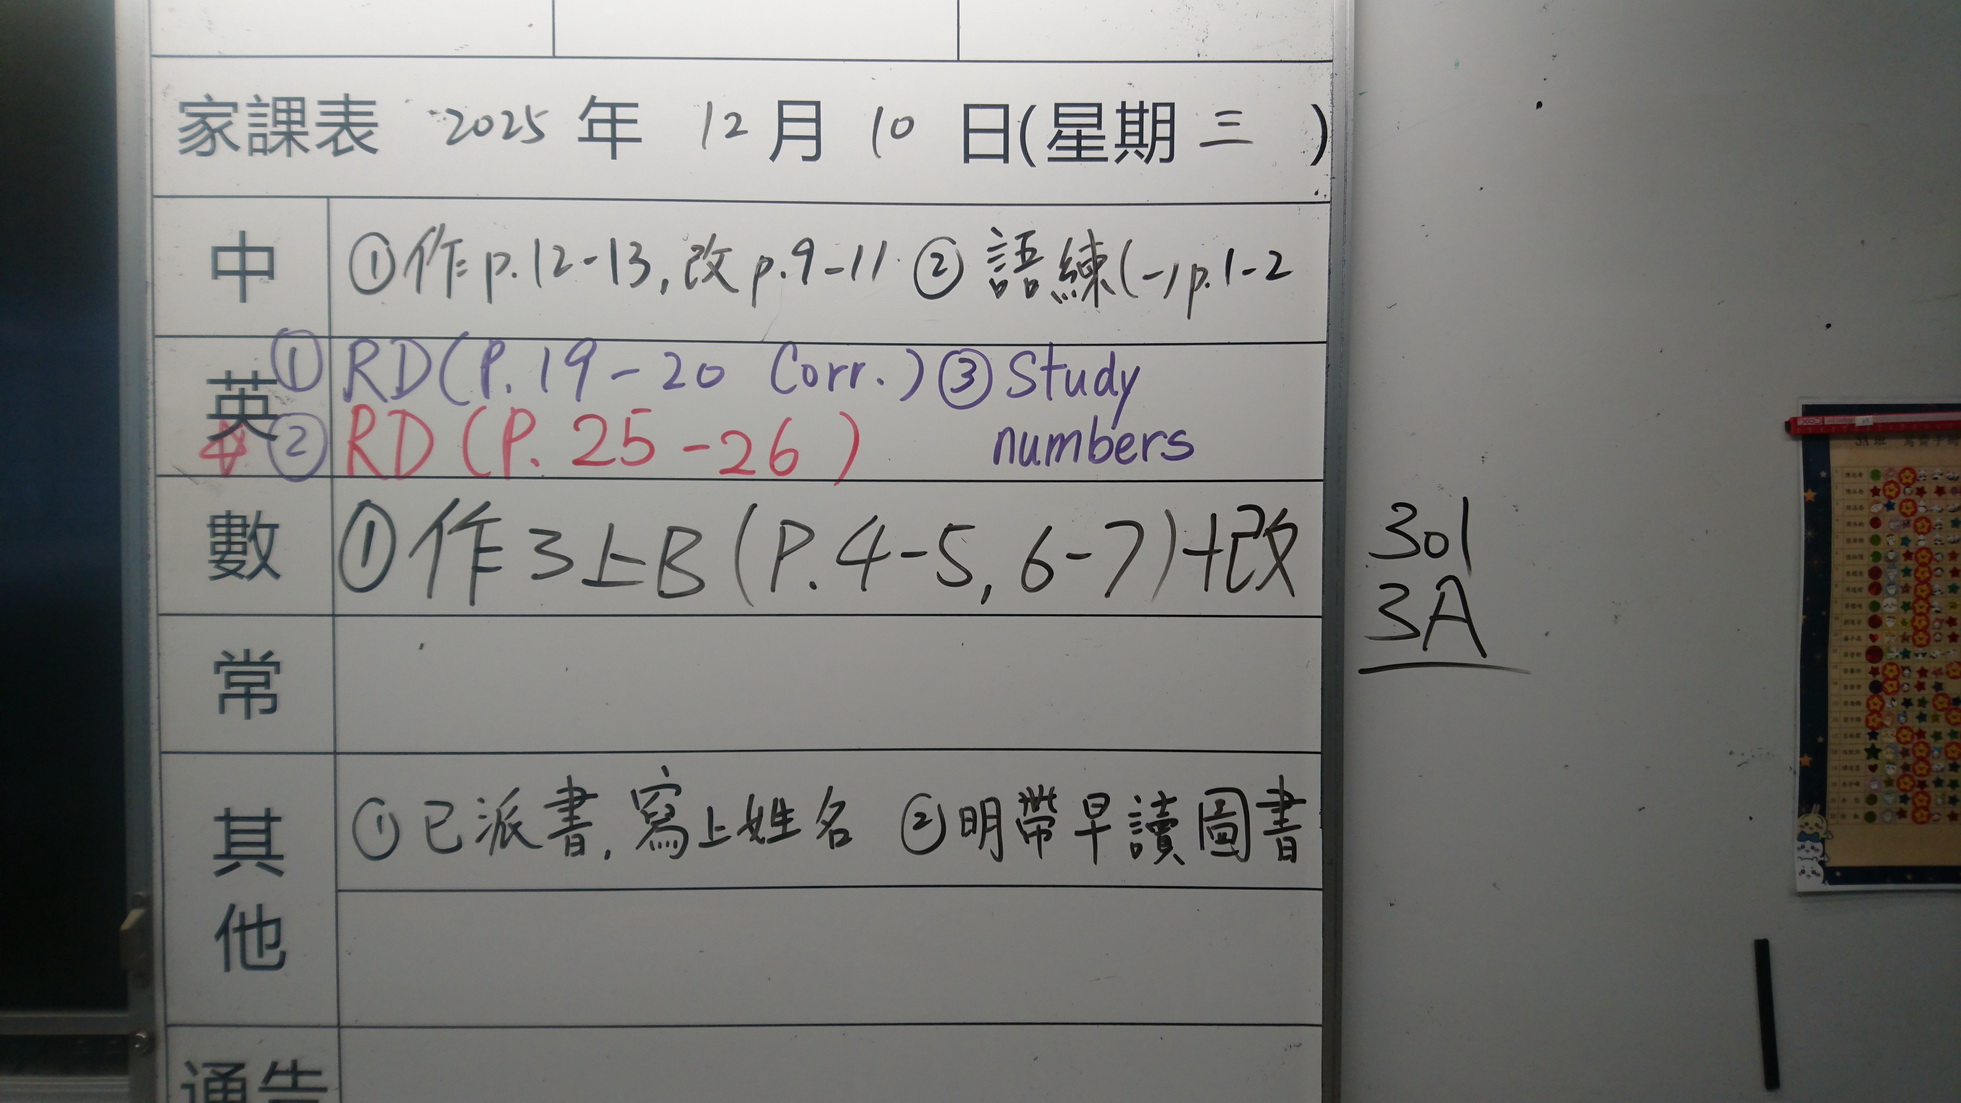 家課表 2025 年 12 月 10 日(星期 三 )
中 ①作p.12-13,改p.9-11 ②語練(一)p.1-2
英 ①RD(P.19-20 Corr.) ③Study
②RD(P.25-26) numbers
數 ①作3上B(P.4-5,6-7)+改
301
3A
常
其他 ①已派書,寫上姓名 ②明帶早讀圖書
通告